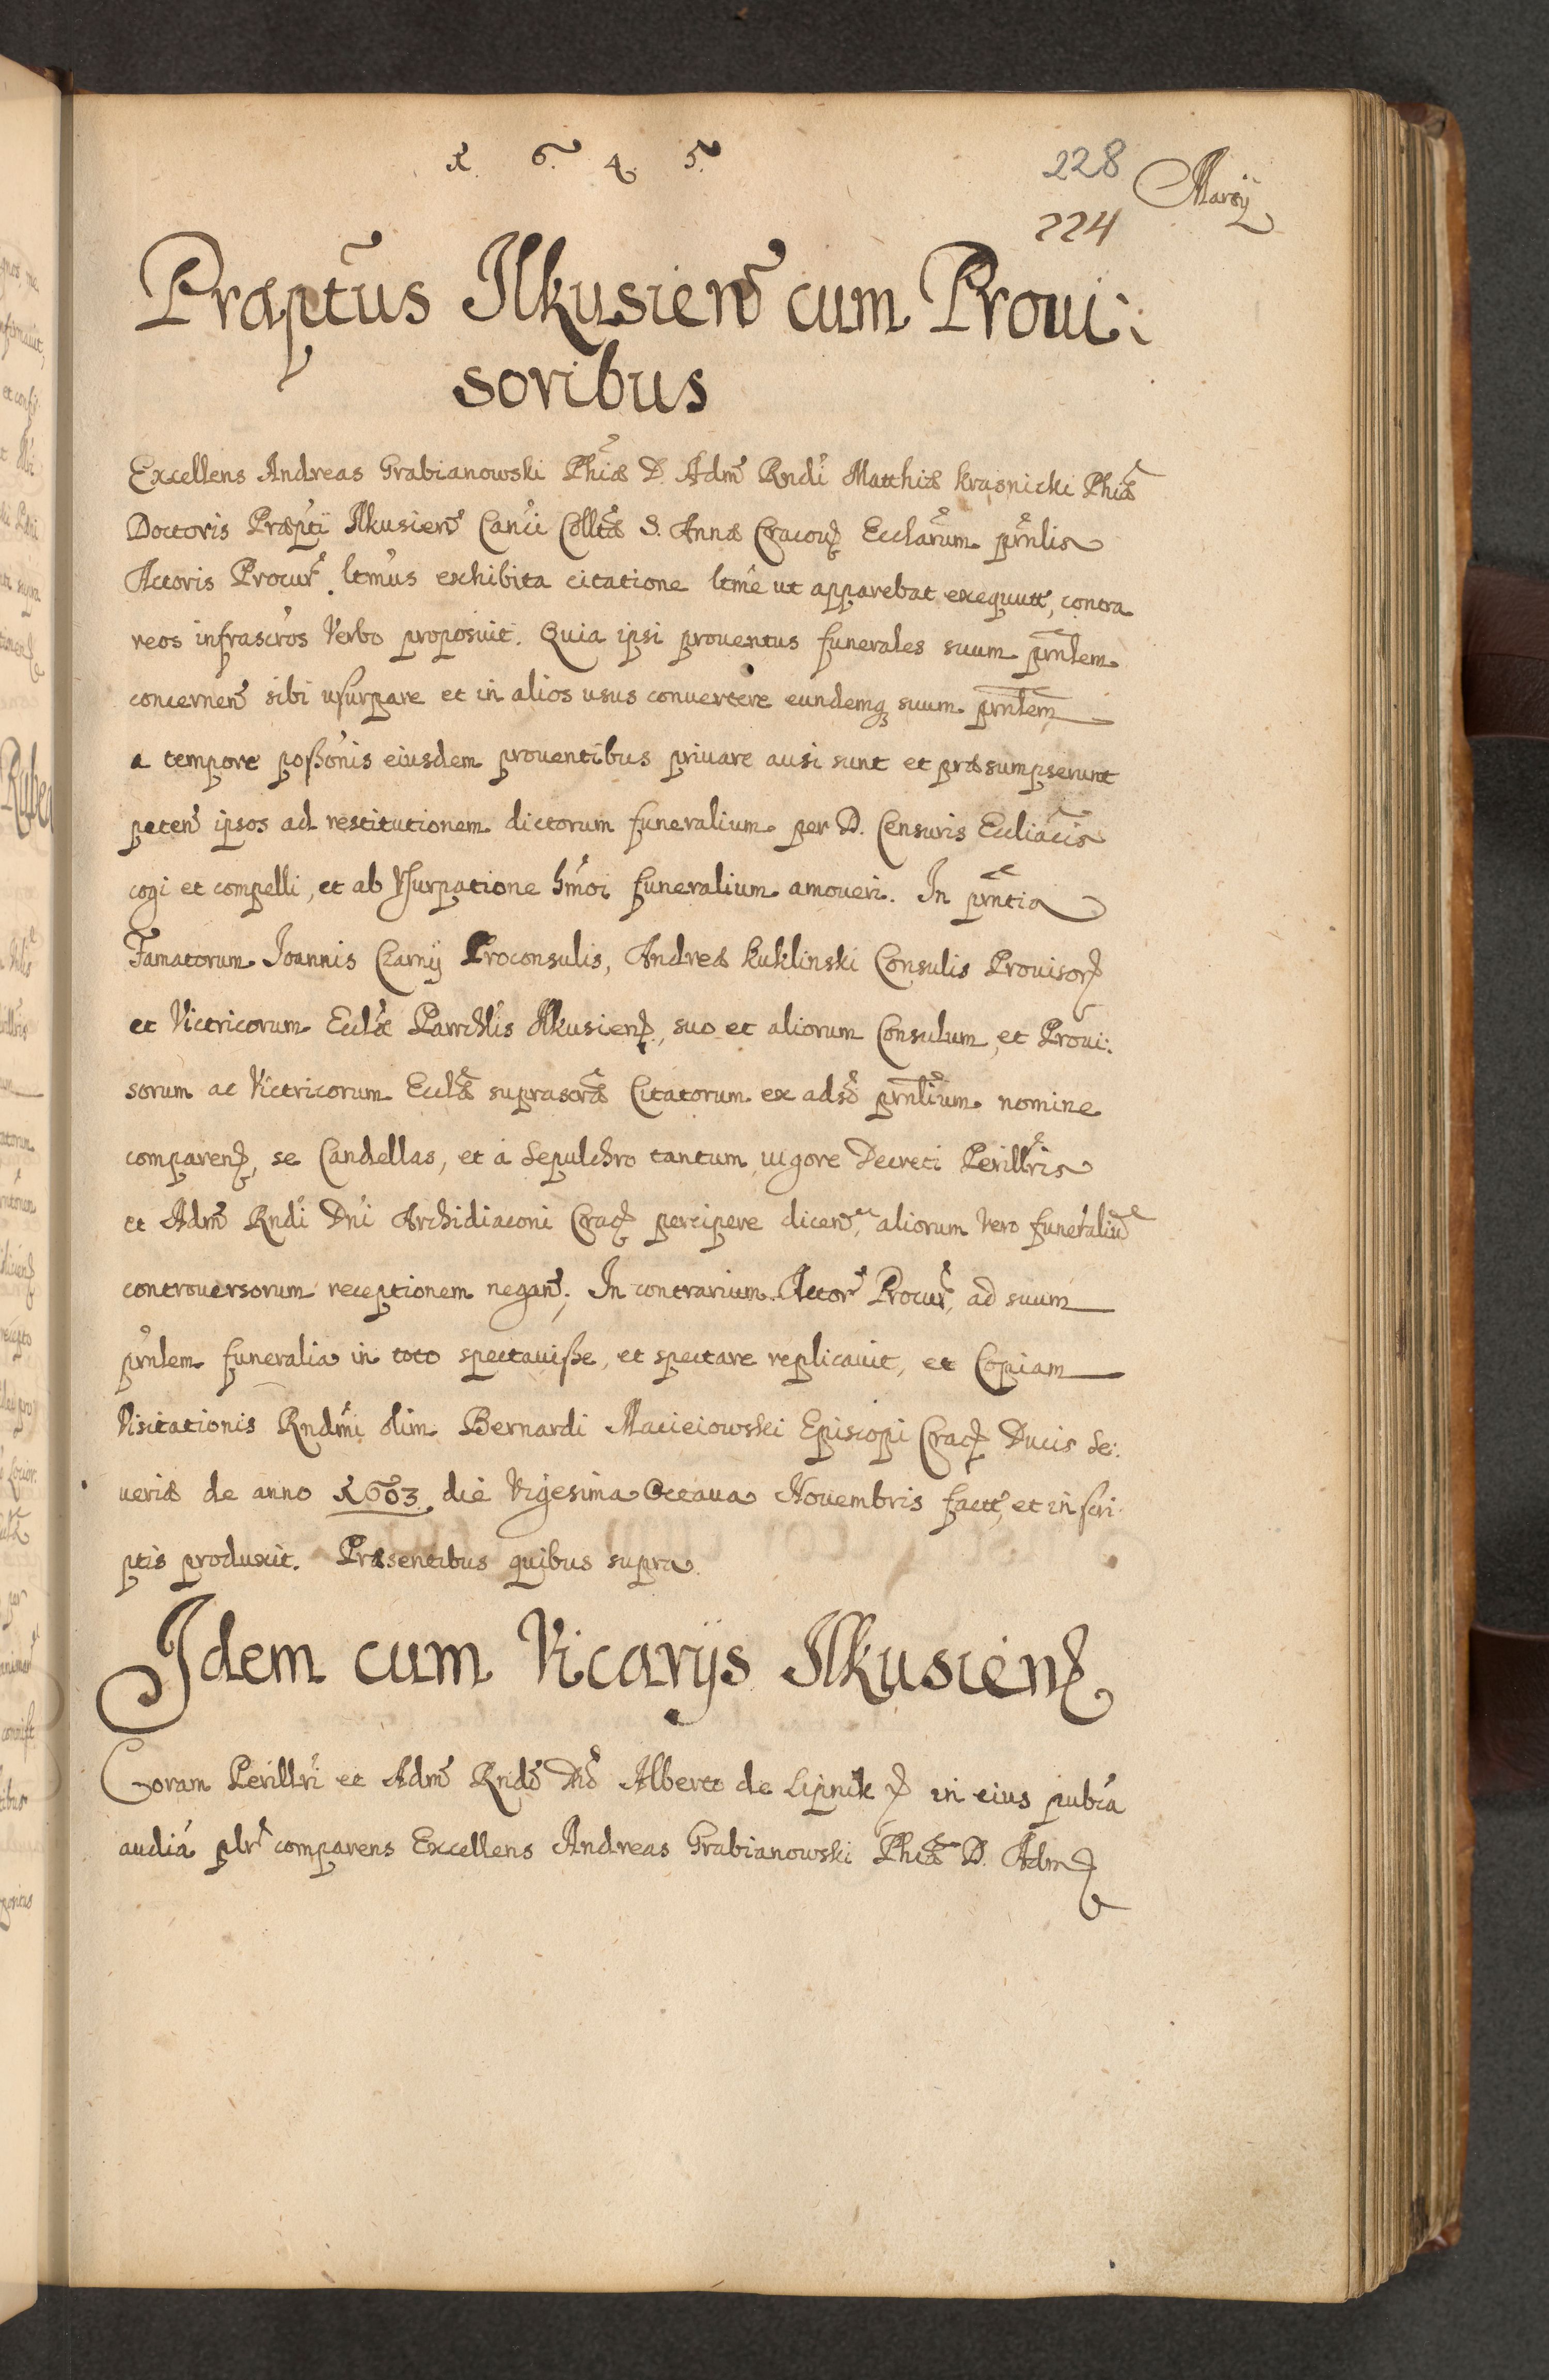 1. 6. 4. 5.
228
Marÿ
224
Præptus Ilkusien cum Proui:
soribus
Excellens Andreas Grabianowski Phiæ D. Adm Rndi Matthiæ Krasnicki Phiæ
Doctoris Præpti Ilkusien Canci Colltæ S. Annæ Cracou Ecclarum prnlis
Actoris Procur. ltmus exhibita citatione ltme ut apparebat exequutt, contra
reos infrascros Verbo proposuit. Quia ipsi prouentus funerales suum prnlem
concernen sibi usurpare et in alios usus conuertere eundemq suum prnlem
a tempore possonis eiusdem prouentibus priuare ausi sunt et præsumpserunt
peten ipsos ad restitutionem dictorum funeralium per D. Censuris Eccliacis
cogi et compelli, et ab Vsurpatione hmoi funeralium amoueri. In prntia
Famatorum Joannis Czarny Proconsulis, Andreæ Kuklinski Consulis Prouisor
et Victricorum Ecclæ Parrchlis Ilkusien, suo et aliorum Consulum, et Proui:
sorum ac Victricorum Ecclæ suprascræ Citatorum ex adso prnlium nomine
comparen, se Candellas, et a Sepulchro tantum, uigore Decreti Perillris
et Adm Rndi Dni Archidiaconi Crac percipere dicen, aliorum Vero funeraliu
controuersorum receptionem negan; In contrarium Actor Procur, ad suum
prnlem funeralia in toto spectauisse, et spectare replicauit, et Copiam
Visitationis Rndmi olim Bernardi Macieiowski Episcopi Crac Ducis Se:
ueriæ de anno 1603. die Vigesima Octaua Nouembris factt, et in scri
ptis produxit. Præsentibus quibus supra.
Idem cum Vicarijs Ilkusien
Coram Perillri et Adm Rndo Dno Alberto de Lipnik in eius pubca
audia plr comparens Excellens Andreas Grabianowski Phiæ D. Adm